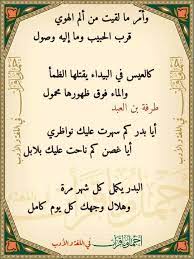 وأمر ما لقيت من ألم الهوي
قرب الحبيب وما إليه وصول
كالعيس في البيداء يقتلها الظمأ
والماء فوق ظهورها محمول
طرفة بن العبد
أيا بدر كم سهرت عليك نواظري
أيا غصن كم ناحت عليك بلابل
البدر يكمل كل شهر مرة
وهلال وجهك كل يوم كامل
في اللغة والأدب